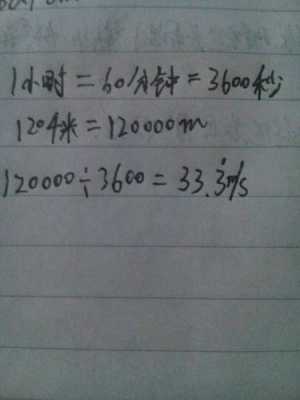 1小时=60分钟=3600秒
120千米=120000m
120000÷3600=33.3̇m/s